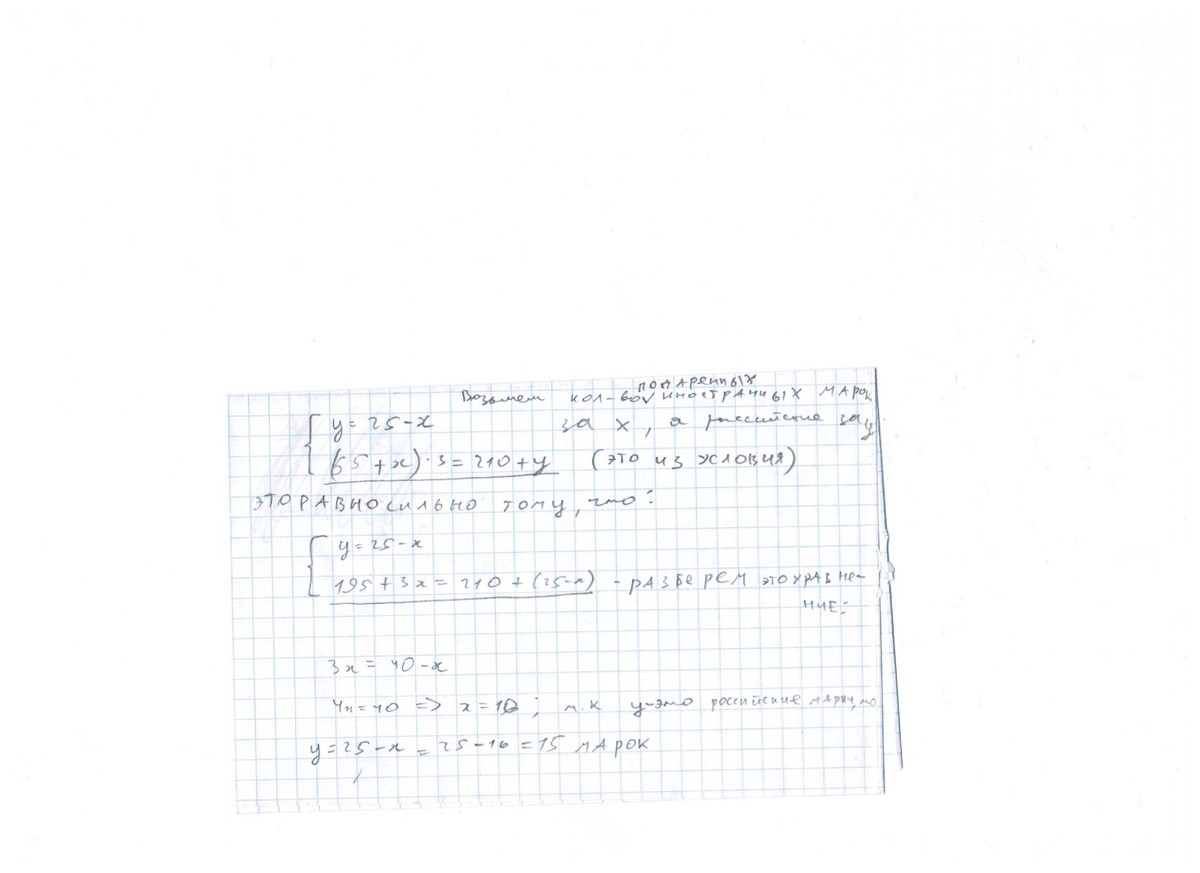 подаренных
Возьмем кол-во√ иностранных марок
y = 25-x за x, а российские за y
(65+x)·3=210+y (это из условия)
ЭТО РАВНОСИЛЬНО тому, что:
y=25-x
195+3x=210+(25-x) - РАЗБЕРЕМ ЭТО УРАВНЕ-
НИЕ:
3x = 40-x
4x=40 => x=10; т.к y-это российские марки, то
y=25-x = 25-10 =15 МАРОК